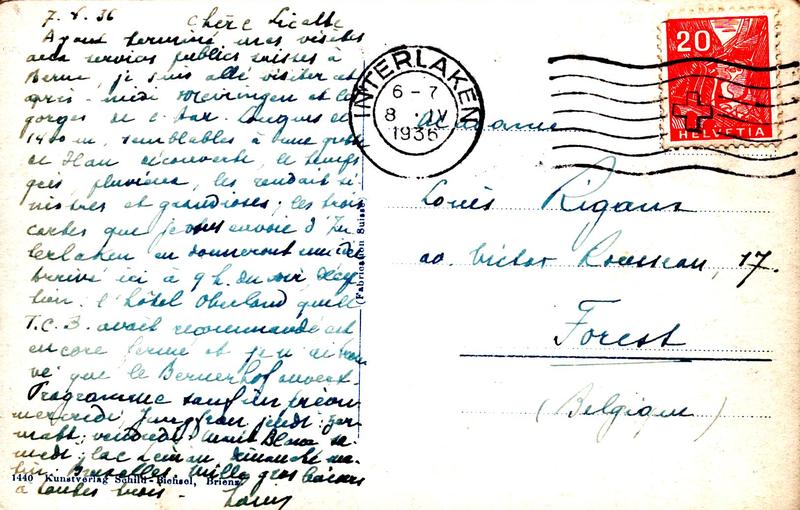 7. 36 Chère
Ayant terminé mes visites
aux services publics suisses à
Berne, je suis allé visiter cet
après-midi Meiringen et les
gorges de l'Aar longues de
1400 m, semblables à une grotte
de Han découverte, le temps
gris pluvieux, les rendait si
nistres et grandioses; les trois
cartes que je vous envoie d'In
terlaken en donneront une idée
Arrivé ici à 9 h. du soir,
l'hôtel Oberland que le
T.C.B. avait recommandé est
encore fermé et je n'ai trou
vé que le Bernerhof ouvert.
Programme sauf imprévu
mercredi Jungfrau jeudi: Zer
matt; vendredi Mont Blanc sa
medi: lac Léman, dimanche ma
tin, Bruxelles. Mille gros baisers
à toutes trois - Louis
1440 Kunstverlag Schild-Bichsel, Brienz
(Fabrication Suisse)
INTERLAKEN
6-7
8 IV
1936
20
HELVETIA
Madame
Louis Rigaux
av. Victor Rousseau, 17.
Forest
(Belgique)